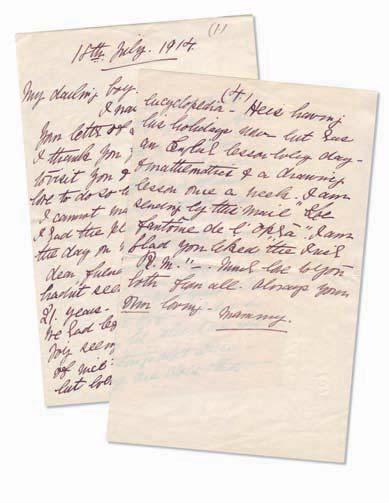 (1)
18th July. 1914.
My darling boy.
I
Your letter of
I thank you
to visit you &
love to do so
I cannot
I had the
the day on
dear
havnt seen
2½ years.
We had
boy seem
of
but
(4)
encyclopedia. He is having
his holidays now but has
an English lesson every day -
& mathematics & a drawing
lesson once a week. I am
sending by this mail "Le
fantôme de l'Opéra". I am
glad you liked the Irish
R.M." - Much love to you
both from all. Always your
own loving - Mammy.